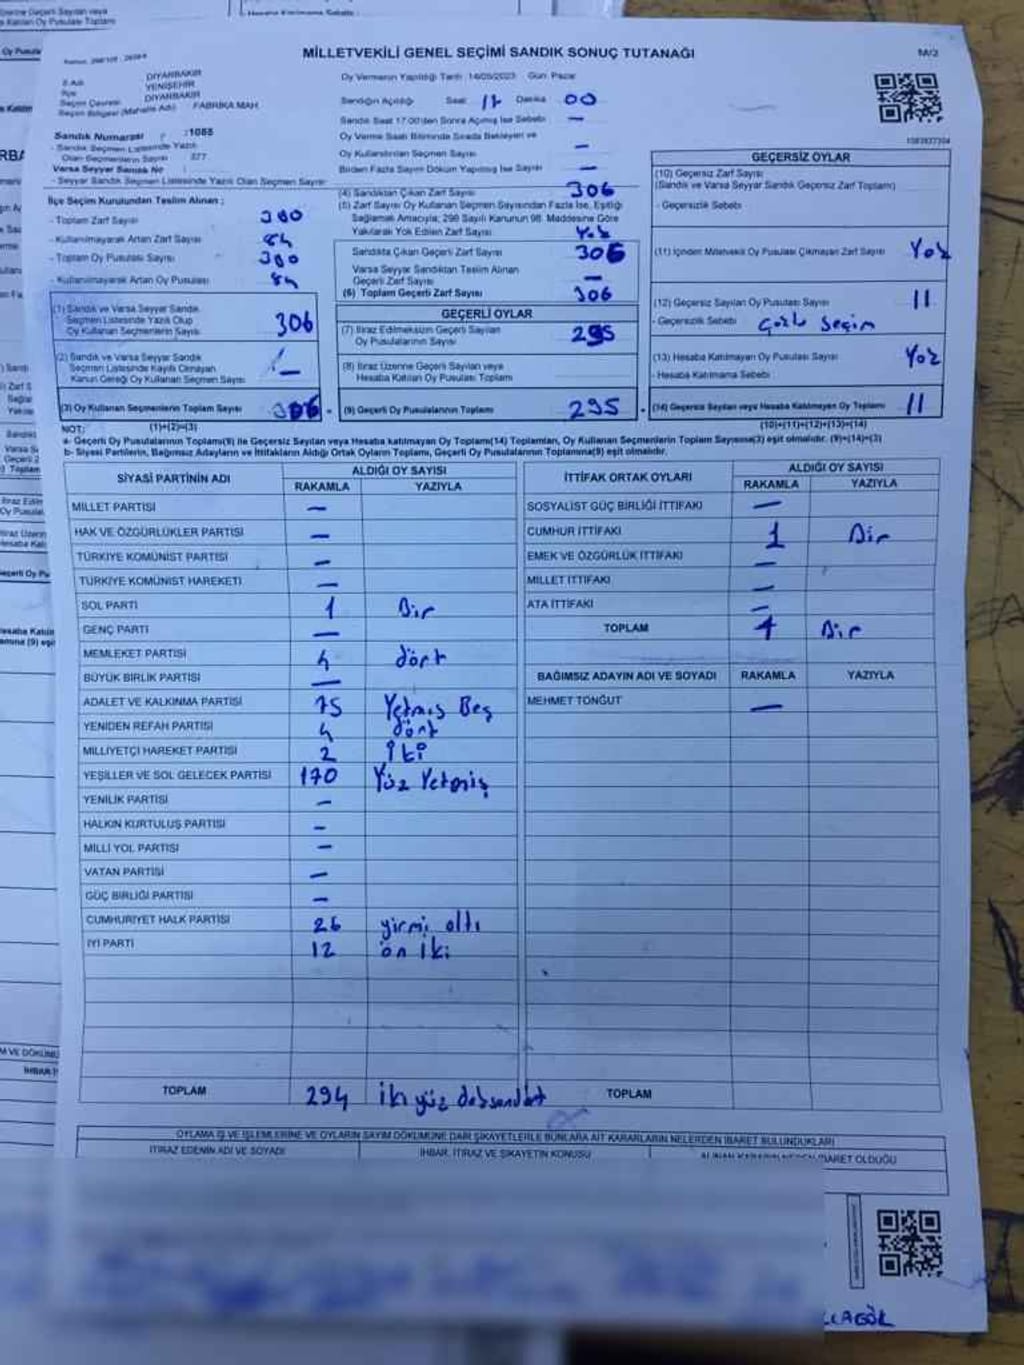 MİLLETVEKİLİ GENEL SEÇİMİ SANDIK SONUÇ TUTANAĞI
M/2
İl Adı DİYARBAKIR
İlçe YENİŞEHİR
Seçim Çevresi DİYARBAKIR
Seçim Bölgesi (Mahalle Adı) FABRİKA MAH.
Sandık Numarası : 1085
- Sandık Seçmen Listesinde Yazılı
Olan Seçmenlerin Sayısı 377
Varsa Seyyar Sandık No
- Seyyar Sandık Seçmen Listesinde Yazılı Olan Seçmen Sayısı
İlçe Seçim Kurulundan Teslim Alınan ;
- Toplam Zarf Sayısı 390
- Kullanılmayarak Artan Zarf Sayısı 84
- Toplam Oy Pusulası Sayısı 390
- Kullanılmayarak Artan Oy Pusulası 84
(1) Sandık ve Varsa Seyyar Sandık
Seçmen Listesinde Yazılı Olup
Oy Kullanan Seçmenlerin Sayısı 306
(2) Sandık ve Varsa Seyyar Sandık
Seçmen Listesinde Kayıtlı Olmayan
Kanun Gereği Oy Kullanan Seçmen Sayısı —
(3) Oy Kullanan Seçmenlerin Toplam Sayısı 306
(1)+(2)=(3)
Oy Vermenin Yapıldığı Tarih : 14/05/2023 Gün: Pazar
Sandığın Açıldığı Saat 17 Dakika 00
Sandık Saat 17:00'den Sonra Açılmış İse Sebebi —
Oy Verme Saati Bitiminde Sırada Bekleyen ve
Oy Kullandırılan Seçmen Sayısı —
Birden Fazla Sayım Döküm Yapılmış İse Sayısı —
(4) Sandıktan Çıkan Zarf Sayısı 306
(5) Zarf Sayısı Oy Kullanan Seçmen Sayısından Fazla İse, Eşitliği
Sağlamak Amacıyla; 298 Sayılı Kanunun 98. Maddesine Göre
Yakılarak Yok Edilen Zarf Sayısı Yok
Sandıkta Çıkan Geçerli Zarf Sayısı 306
Varsa Seyyar Sandıktan Teslim Alınan
Geçerli Zarf Sayısı —
(6) Toplam Geçerli Zarf Sayısı 306
GEÇERLİ OYLAR
(7) İtiraz Edilmeksizin Geçerli Sayılan
Oy Pusulalarının Sayısı 295
(8) İtiraz Üzerine Geçerli Sayılan veya
Hesaba Katılan Oy Pusulası Toplamı
(9) Geçerli Oy Pusulalarının Toplamı 295
GEÇERSİZ OYLAR
(10) Geçersiz Zarf Sayısı
(Sandık ve Varsa Seyyar Sandık Geçersiz Zarf Toplamı)
- Geçersizlik Sebebi
(11) İçinden Milletvekili Oy Pusulası Çıkmayan Zarf Sayısı Yok
(12) Geçersiz Sayılan Oy Pusulası Sayısı 11
- Geçersizlik Sebebi Çoklu Seçim
(13) Hesaba Katılmayan Oy Pusulası Sayısı Yok
- Hesaba Katılmama Sebebi
(14) Geçersiz Sayılan veya Hesaba Katılmayan Oy Toplamı 11
(10)+(11)+(12)+(13)=(14)
NOT:
a- Geçerli Oy Pusulalarının Toplamı(9) ile Geçersiz Sayılan veya Hesaba katılmayan Oy Toplamı(14) Toplamları, Oy Kullanan Seçmenlerin Toplam Sayısına(3) eşit olmalıdır. (9)+(14)=(3)
b- Siyasi Partilerin, Bağımsız Adayların ve İttifakların Aldığı Ortak Oyların Toplamı, Geçerli Oy Pusulalarının Toplamına(9) eşit olmalıdır.
SİYASİ PARTİNİN ADI ALDIĞI OY SAYISI
RAKAMLA YAZIYLA
MİLLET PARTİSİ —
HAK VE ÖZGÜRLÜKLER PARTİSİ —
TÜRKİYE KOMÜNİST PARTİSİ —
TÜRKİYE KOMÜNİST HAREKETİ —
SOL PARTİ 1 Bir
GENÇ PARTİ —
MEMLEKET PARTİSİ 4 dört
BÜYÜK BİRLİK PARTİSİ —
ADALET VE KALKINMA PARTİSİ 75 Yetmiş Beş
YENİDEN REFAH PARTİSİ 4 dört
MİLLİYETÇİ HAREKET PARTİSİ 2 İki
YEŞİLLER VE SOL GELECEK PARTİSİ 170 Yüz Yetmiş
YENİLİK PARTİSİ —
HALKIN KURTULUŞ PARTİSİ —
MİLLİ YOL PARTİSİ —
VATAN PARTİSİ —
GÜÇ BİRLİĞİ PARTİSİ —
CUMHURİYET HALK PARTİSİ 26 yirmi altı
İYİ PARTİ 12 on iki
TOPLAM 294 iki yüz doksandört
İTTİFAK ORTAK OYLARI ALDIĞI OY SAYISI
RAKAMLA YAZIYLA
SOSYALİST GÜÇ BİRLİĞİ İTTİFAKI —
CUMHUR İTTİFAKI 1 Bir
EMEK VE ÖZGÜRLÜK İTTİFAKI —
MİLLET İTTİFAKI —
ATA İTTİFAKI —
TOPLAM 1 Bir
BAĞIMSIZ ADAYIN ADI VE SOYADI RAKAMLA YAZIYLA
MEHMET TONGUT —
TOPLAM
OYLAMA İŞ VE İŞLEMLERİNE VE OYLARIN SAYIM DÖKÜMÜNE DAİR ŞİKAYETLERLE BUNLARA AİT KARARLARIN NELERDEN İBARET BULUNDUKLARI
İTİRAZ EDENİN ADI VE SOYADI İHBAR, İTİRAZ VE ŞİKAYETİN KONUSU